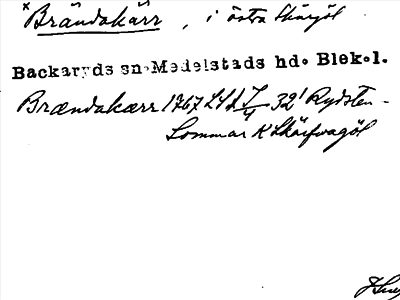 × Brändakärr, i östra Skärgöl
Backaryds sn. Medelstads hd. Blek.l.
Brændakærr 1767 LSA 32' Rydsten-
Sommar K Skärfvagöl